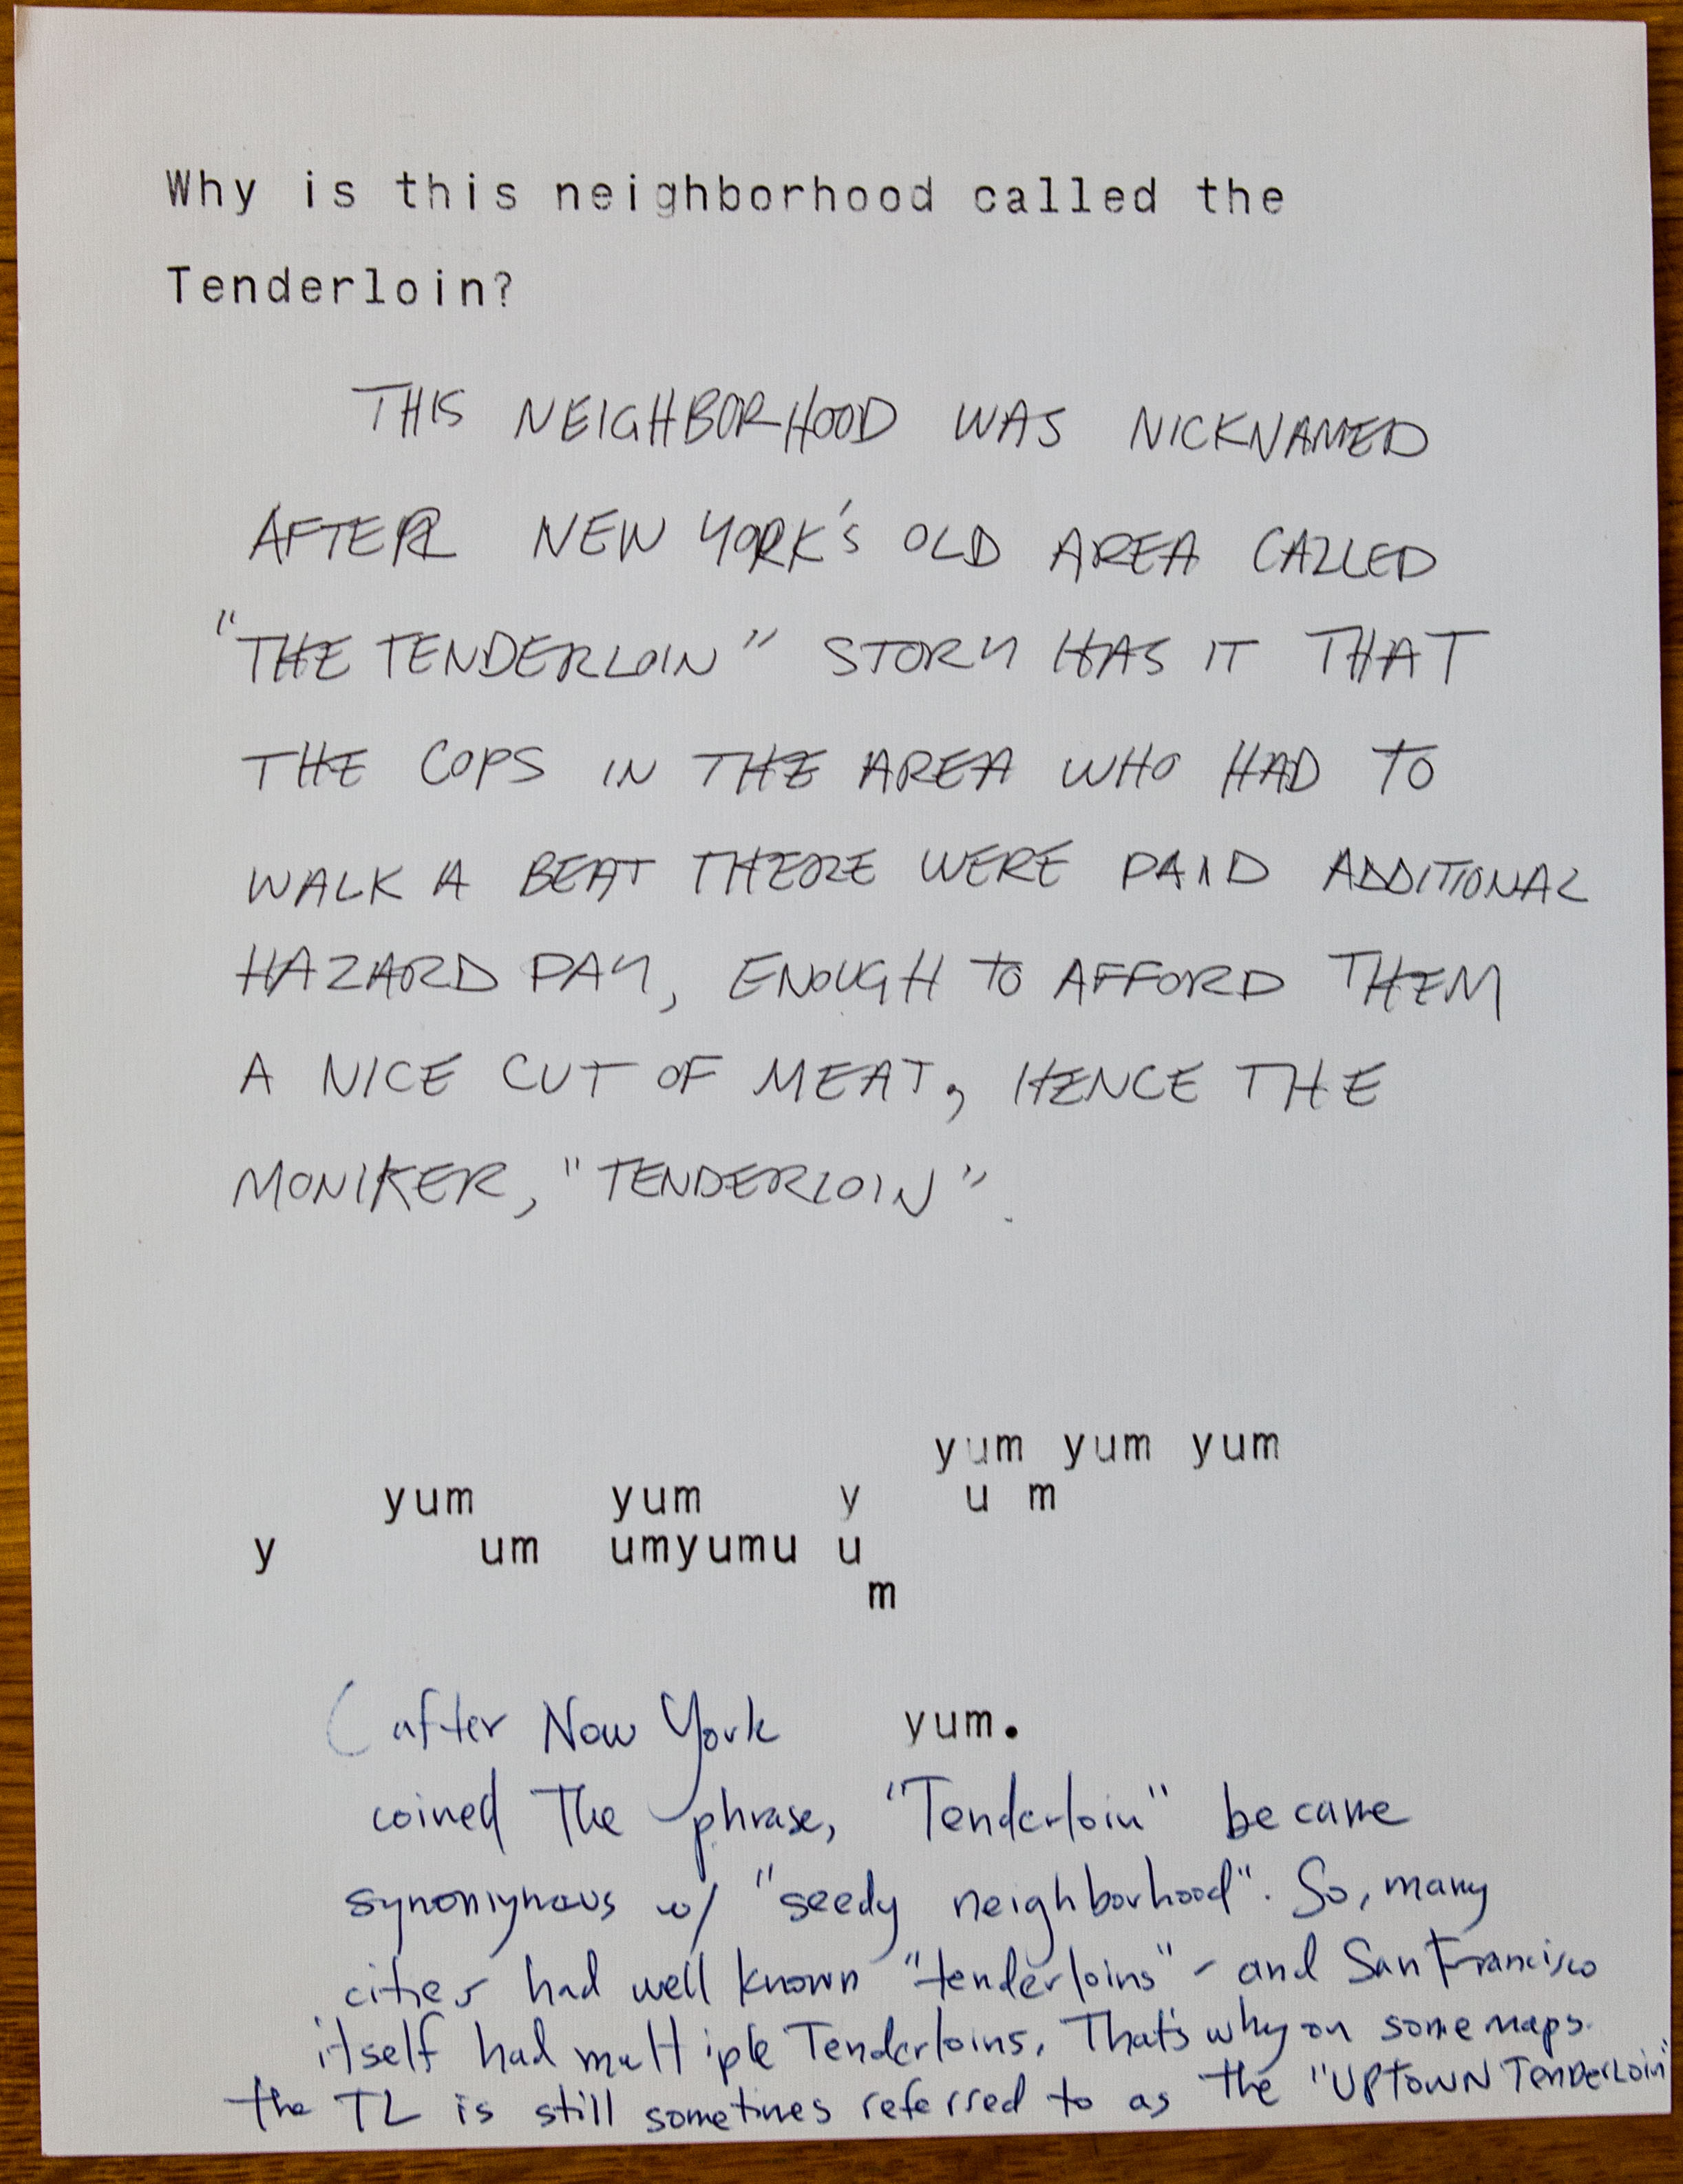 Why is this neighborhood called the
Tenderloin?
THIS NEIGHBORHOOD WAS NICKNAMED
AFTER NEW YORK'S OLD AREA CALLED
"THE TENDERLOIN" STORY HAS IT THAT
THE COPS IN THE AREA WHO HAD TO
WALK A BEAT THERE WERE PAID ADDITIONAL
HAZARD PAY, ENOUGH TO AFFORD THEM
A NICE CUT OF MEAT, HENCE THE
MONIKER, "TENDERLOIN".
yum yum yum
yum yum y u m
y um umyumu u
m
yum.
(after New York
coined the phrase, "Tenderloin" became
synonymous w/ "seedy neighborhood". So, many
cities had well known "tenderloins" - and San Francisco
itself had multiple Tenderloins. That's why on some maps
the TL is still sometimes referred to as the "UPTOWN TENDERLOIN"